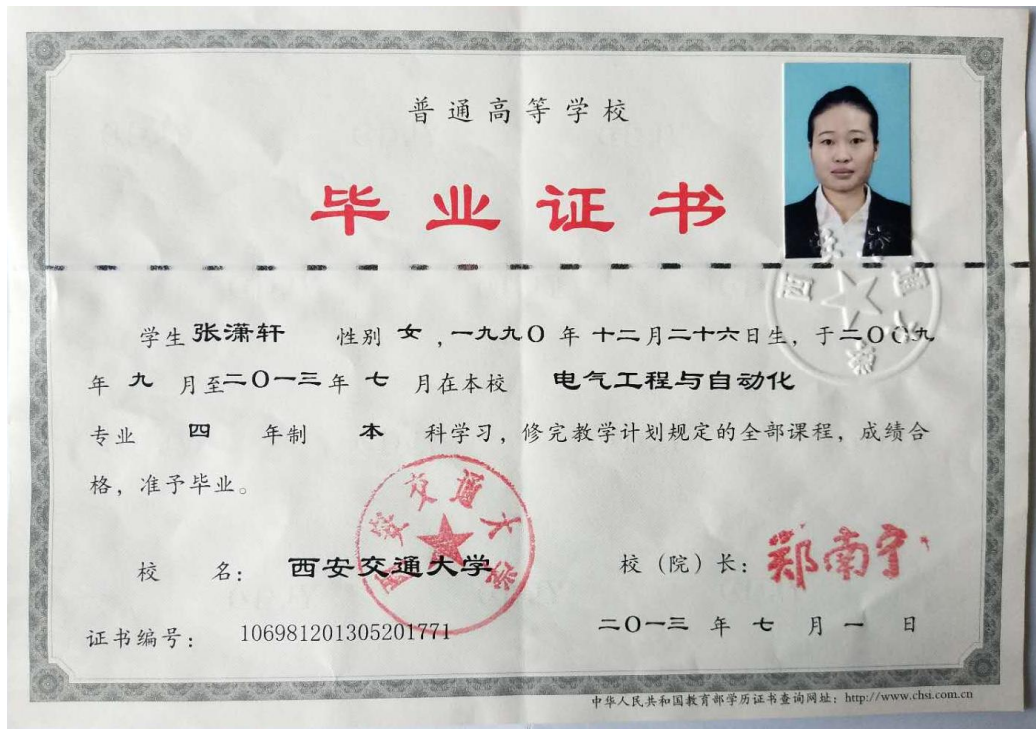 普通高等学校
毕业证书
学生 张潇轩 性别 女 ，一九九〇 年 十二月二十六日生，于二〇〇九
年 九 月至二〇一三年 七 月在本校 电气工程与自动化
专业 四 年制 本 科学习，修完教学计划规定的全部课程，成绩合
格，准予毕业。
西安交通大学
校 名： 西安交通大学 校（院）长：郑南宁
证书编号： 106981201305201771 二〇一三 年 七 月 一 日
中华人民共和国教育部学历证书查询网址：http://www.chsi.com.cn